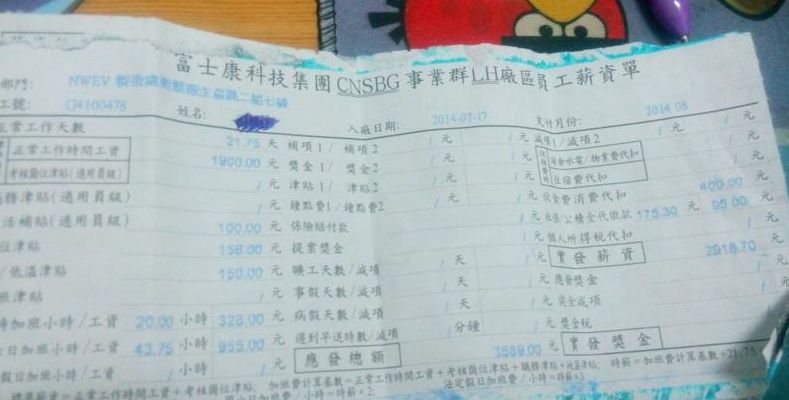 富士康科技集團 CNSBG 事業群 LH 廠區員工薪資單
部門: NWEV
工號: G4100478 姓名: 入廠日期: 2014-07-17 支付月份: 2014 08
正常工作天數 21.75 天 補項1/ 補項2 / 元 / 元 減項1/減項2 / 元 / 元
正常工作時間工資 1800.00 元 獎金1/ 獎金2 / 元 / 元 住宿水電/物業費代扣 / 元
考核崗位津貼(適用員級) / 元 津貼1/ 津貼2 / 元 / 元 住宿費代扣
務津貼(適用員級) / 元 鐘點費1/鐘點費2 / 元 / 元 伙食費消費代扣 400.00 元
活補貼(適用員級) 100.00 元 保險貼付款 / 元 社保/公積金代繳款 175.30 元 95.00 元
位津貼 156.00 元 提案獎金 / 元 個人所得稅代扣 / 元
/低溫津貼 150.00 元 曠工天數/減項 / 天 / 元 實發薪資 2918.70 元
班津貼 / 元 事假天數/減項 / 天 / 元 應發獎金 / 元
時加班小時/工資 20.00 小時 328.00 元 病假天數/減項 / 天 / 元 獎金減項 / 元
日加班小時/工資 43.75 小時 955.00 元 遲到早退時數/減項 / 分鐘 / 元 獎金稅
假日加班小時/工資 / 小時 / 元 應發總額 3589.00 元 實發獎金
標準薪資=正常工作時間工資+考核崗位津貼; 加班費計算基數=正常工作時間工資+考核崗位津貼+職務津貼+ 時薪=加班費計算基數÷21.75
法定假日加班費/小時=時薪×3